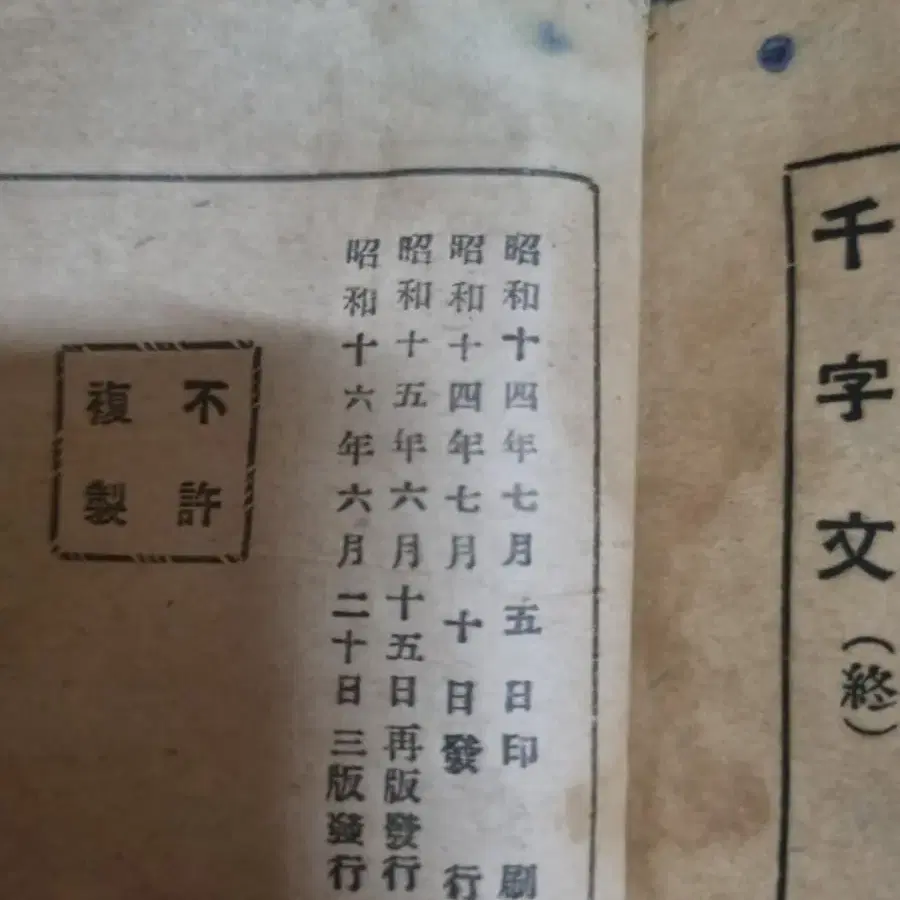 千字文(終)
昭和十四年七月五日印刷
昭和十四年七月十日發行
昭和十五年六月十五日再版發行
昭和十六年六月二十日三版發行
不許
複製